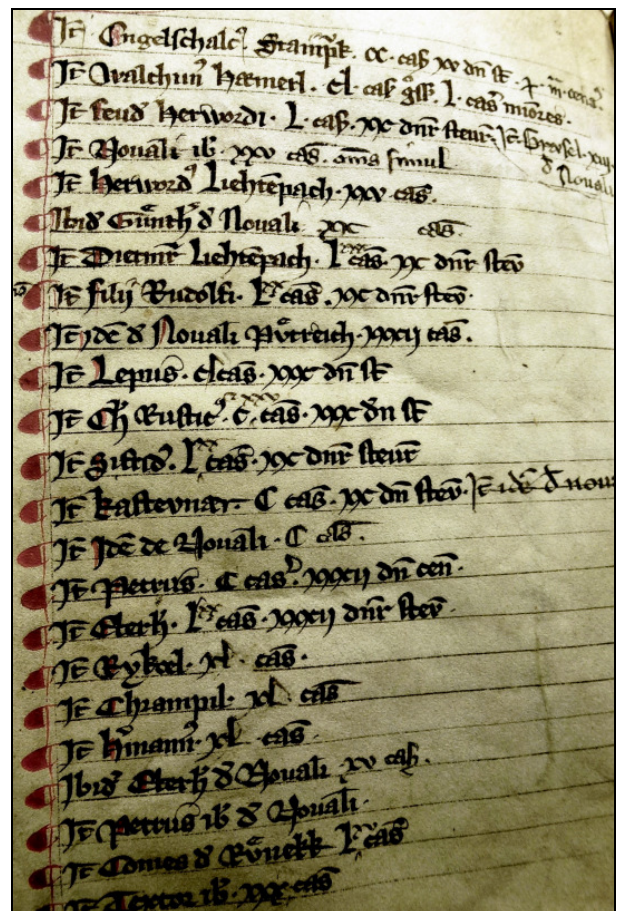 It̄ Engelschalc⁹. Stampk̄. cc. cas̄ xv dn̄ st̄.
It̄ Walchun̄ Hæmerl. cl. cas̄ gͦss̄ L. cas̄ miōres.
It̄ feud Herwordi. L. cas̄. xc dn̄r steur̄.
d̄ Nouali
It̄ Nouali ib̄. xxv cas̄. simul
It̄ Herword⁹ Liehtēpach. xxv cas̄.
Ibid̄ Gūnth̄ d̄ Nouali xxc cas̄.
It̄ Dietmr̄ Liehtēpach. Lˣˣˣ cas̄ xc dn̄r stev̄
It̄ filij Rudolfi. Lˣ cas̄. xc dn̄r stev̄.
It̄ ydē d̄ Nouali Pvͦtreich. xxxij cas̄.
It̄ Lepus. cl cas̄. xxxc dn̄ st̄
It̄ Ch̄ Rustic⁹. c. ˣˣᵛ cas̄. xxxc dn̄ st̄
It̄ Sifrid̄. Lˣˣ cas̄. xc dn̄r steur̄
It̄ Kastevnær. C cas̄. xc dn̄ stev̄. It̄ idē d̄ nou
It̄ Idē de Nouali. C cas̄.
It̄ Petrus. C cas̄. xxxij dn̄ cen̄.
It̄ Eterh̄. Lˣˣ cas̄. xxxij dn̄r stev̄.
It̄ Rykxel. xl. cas̄.
It̄ Chrampil. xl cas̄
It̄ H̄mann̄. xl cas̄.
Ibid̄ Eterh̄ d̄ Nouali xv cas̄.
It̄ Petrus ib̄ d̄ Nouali.
It̄ Comes d̄ Rvͦnekk Lˣ cas̄
It̄ Textor ib̄. xxx cas̄